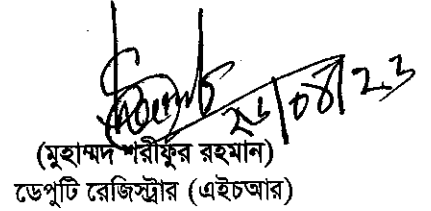 ২১/০৪/২৩
(মুহাম্মদ শরীফুর রহমান)
ডেপুটি রেজিস্ট্রার (এইচআর)